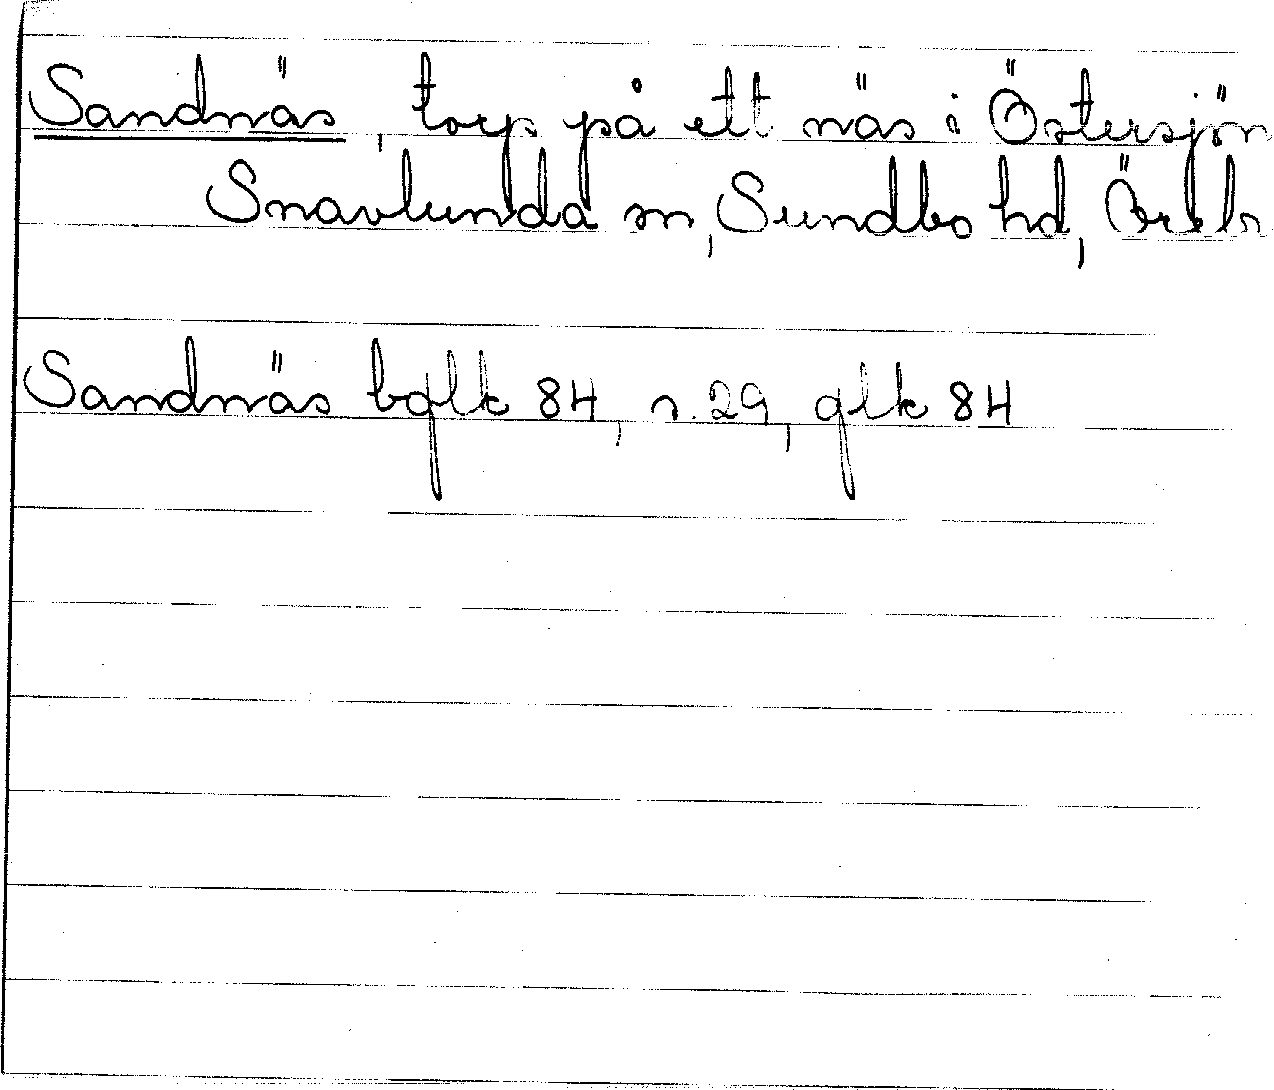 Sandnäs, torp på ett näs i Östersjön
Snavlunda sn, Sundbo hd, Örebr
Sandnäs bglk 84, s. 29, glk 84